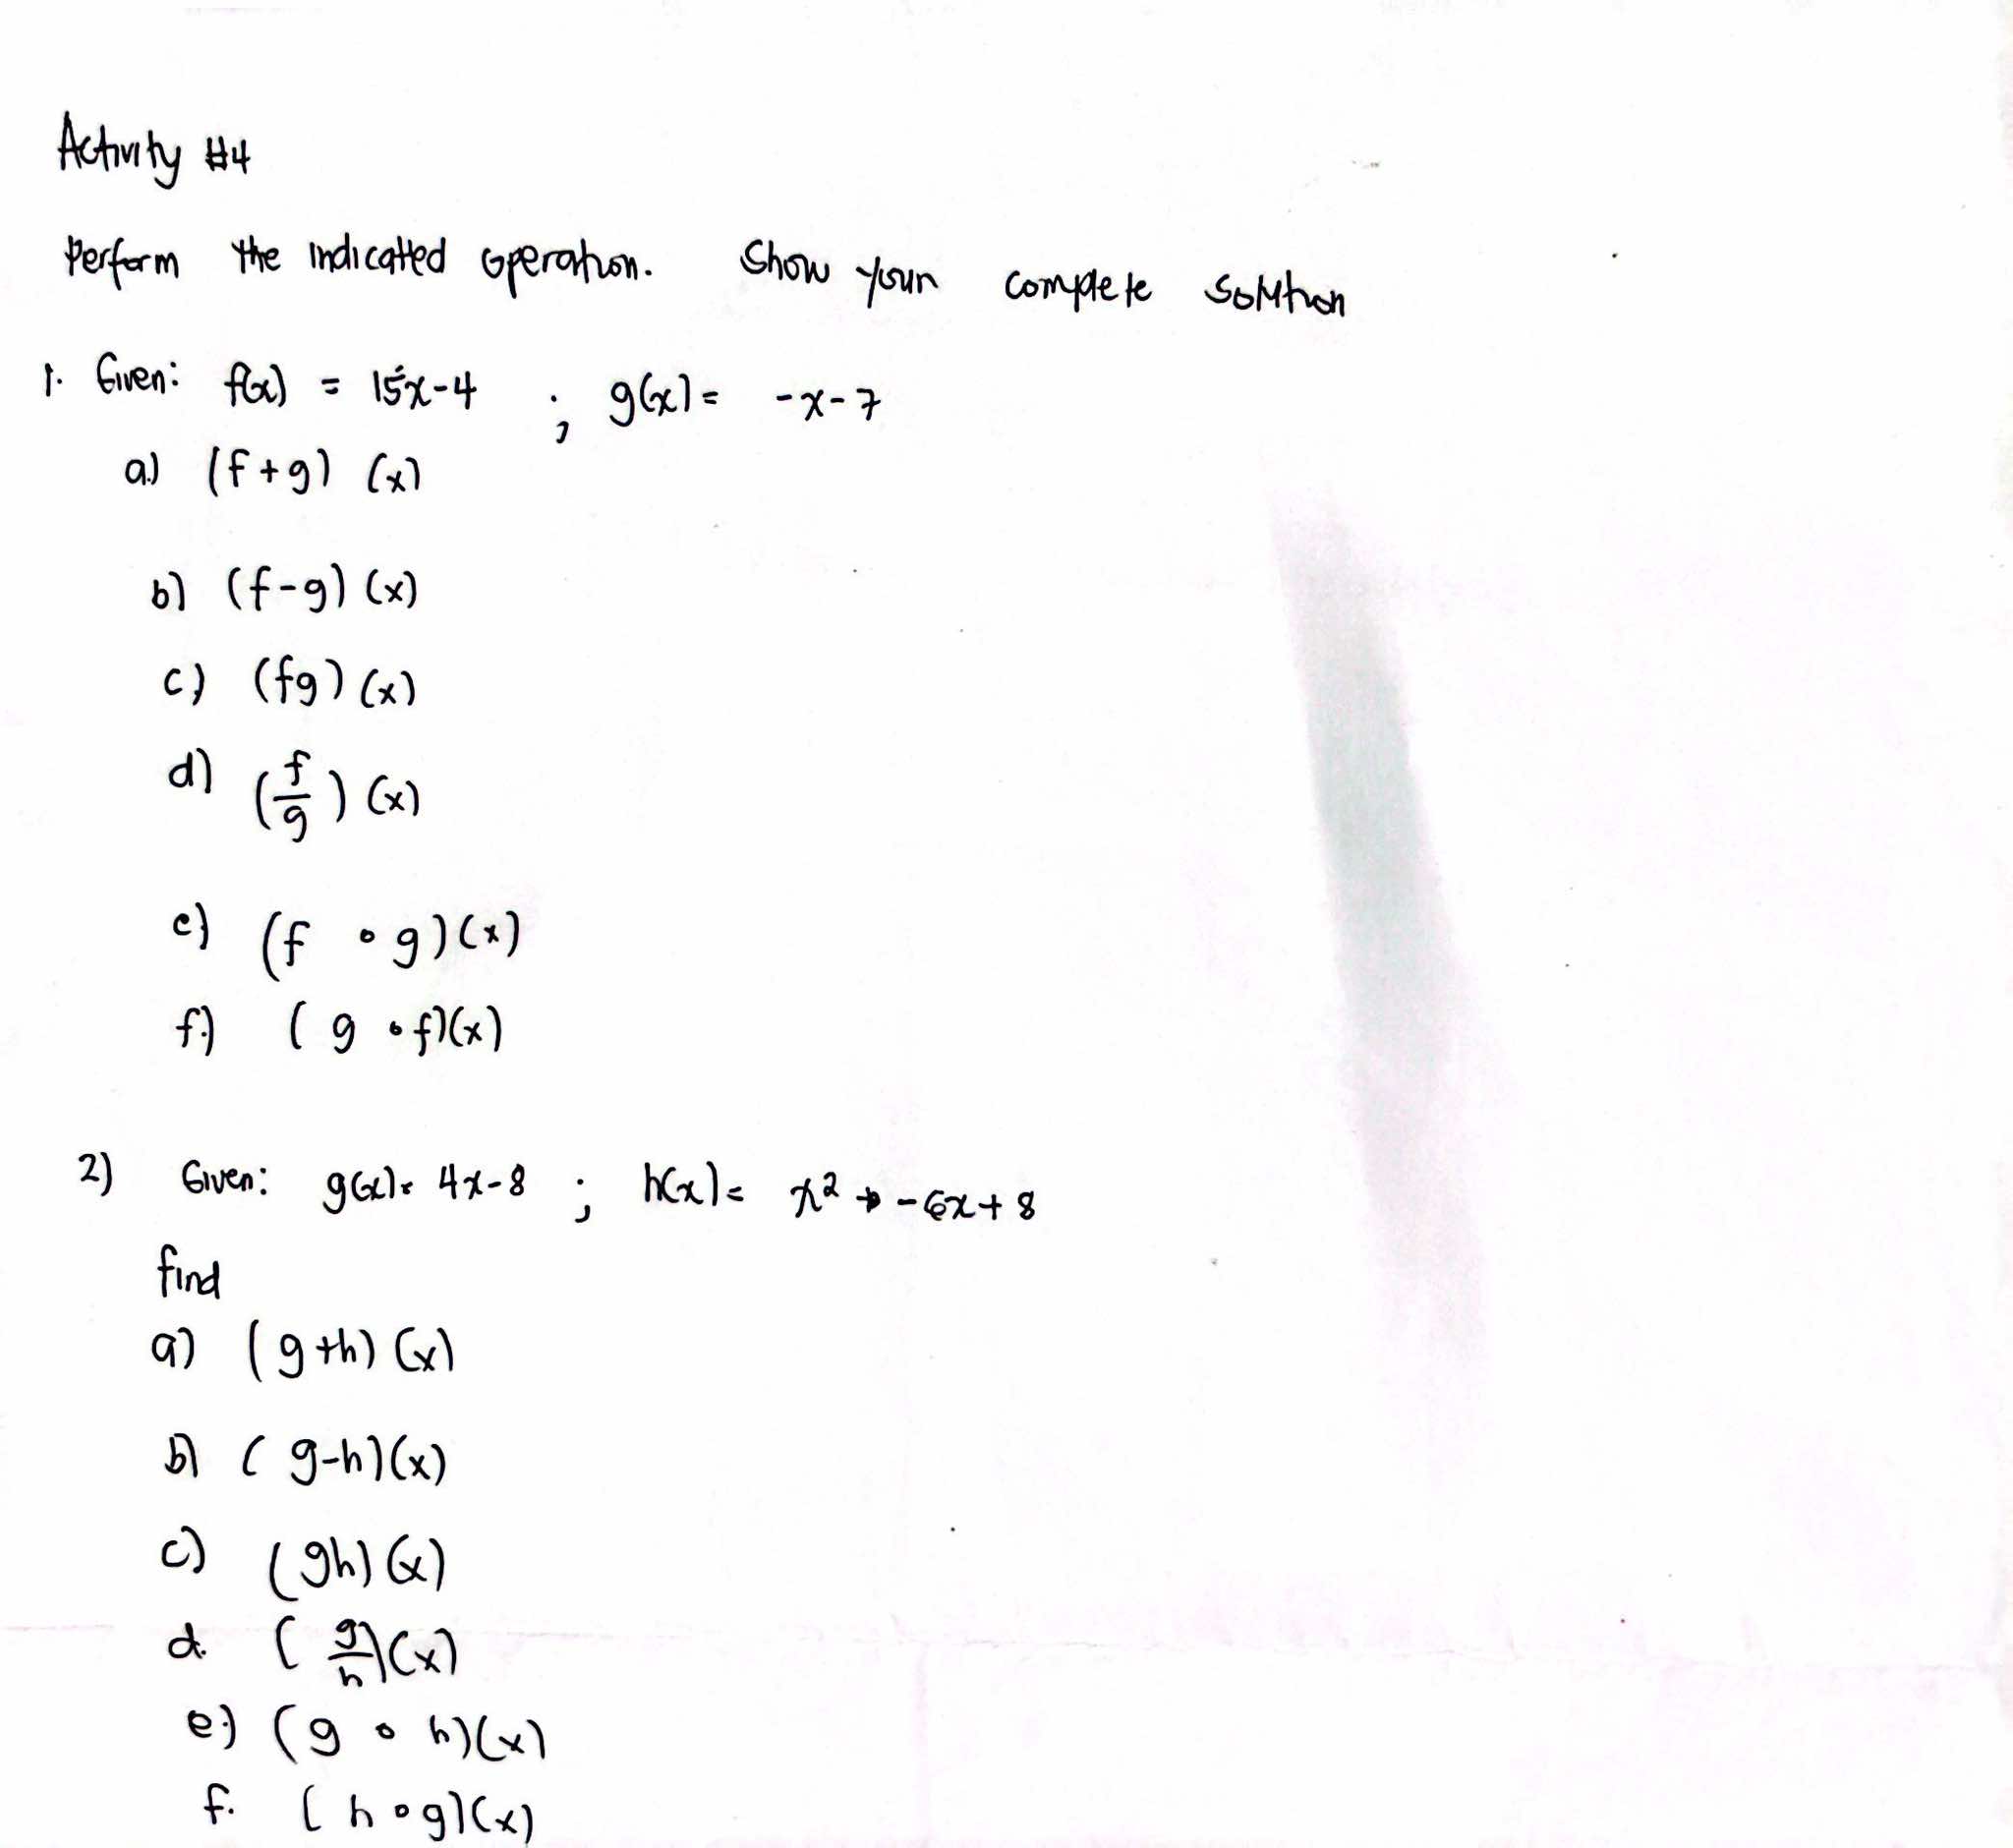 Activity #4
Perform the indicatted operation. Show your complete solution
1. Given: f(x) = 15x-4 ; g(x) = -x-7
a.) (f+g) (x)
b) (f-g) (x)
c) (fg) (x)
d) (f/g) (x)
e) (f ∘ g)(x)
f.) (g ∘ f)(x)
2) Given: g(x) = 4x-8 ; h(x) = x² -6x+8
find
a) (g+h) (x)
b) (g-h)(x)
c) (gh) (x)
d. (g/h)(x)
e.) (g ∘ h)(x)
f. (h ∘ g)(x)